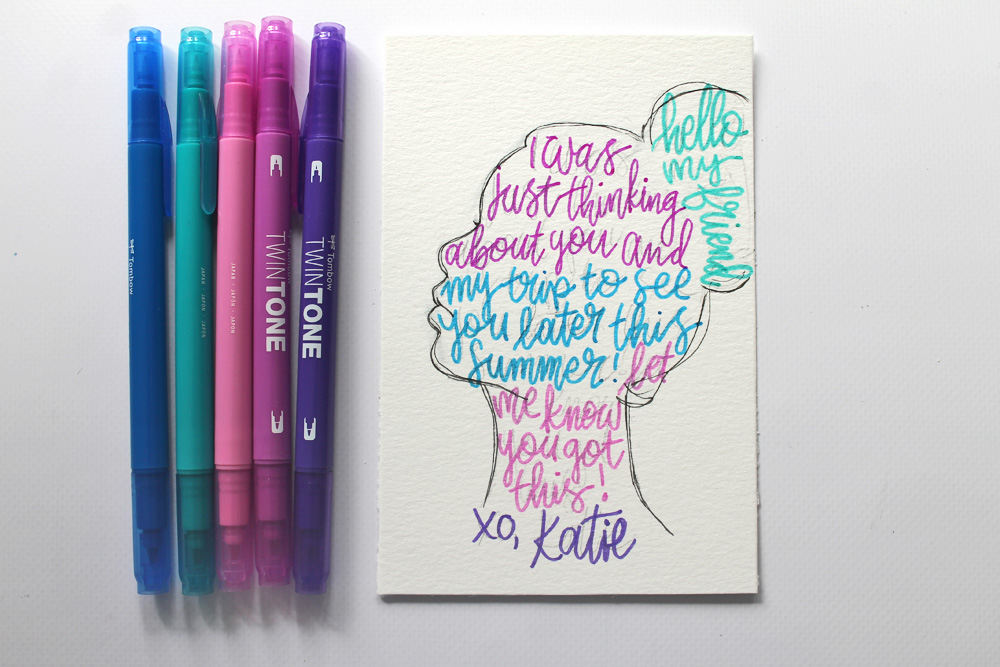 Tombow
JAPAN · JAPON · JAPON
JAPAN · JAPON · JAPON
TWINTONE
Tombow
TWINTONE
hello
my
friend,
I was
just thinking
about you and
my trip to see
you later this
summer! let
me know
you got
this!
xo, Katie